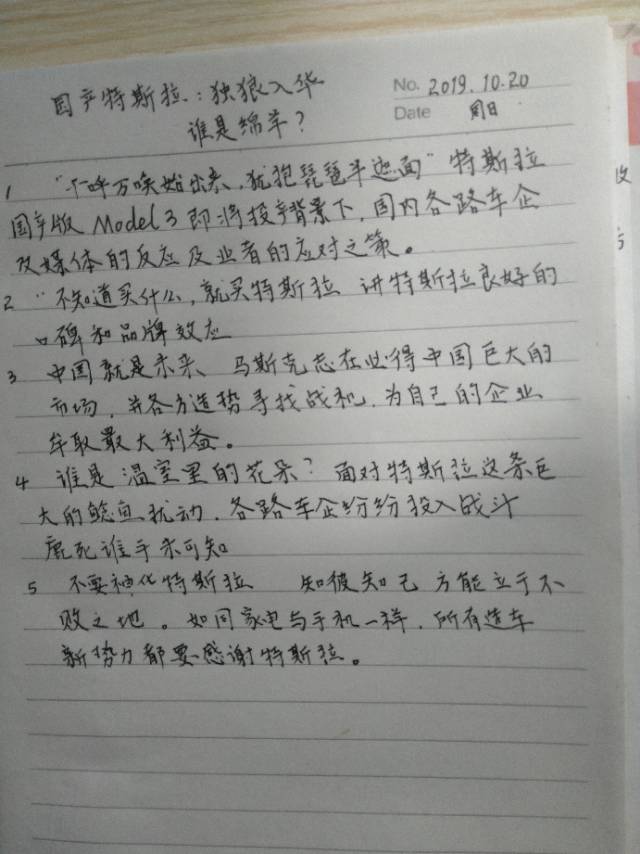 国产特斯拉：独狼入华
谁是绵羊？
No. 2019.10.20
Date 周日
1 "千呼万唤始出来，犹抱琵琶半遮面"特斯拉
国产版 Model 3 即将投产背景下，国内各路车企
及媒体的反应及业者的应对之策。
2 "不知道买什么，就买特斯拉 讲特斯拉良好的
口碑和品牌效应
3 中国就是未来、马斯克志在必得中国巨大的
市场，并各方造势寻找战机，为自己的企业
牟取最大利益。
4 谁是温室里的花朵？面对特斯拉这条巨
大的鲶鱼扰动，各路车企纷纷投入战斗
鹿死谁手未可知
5 不要神化特斯拉 知彼知己 方能立于不
败之地。如同家电与手机一样，所有造车
新势力都要感谢特斯拉。